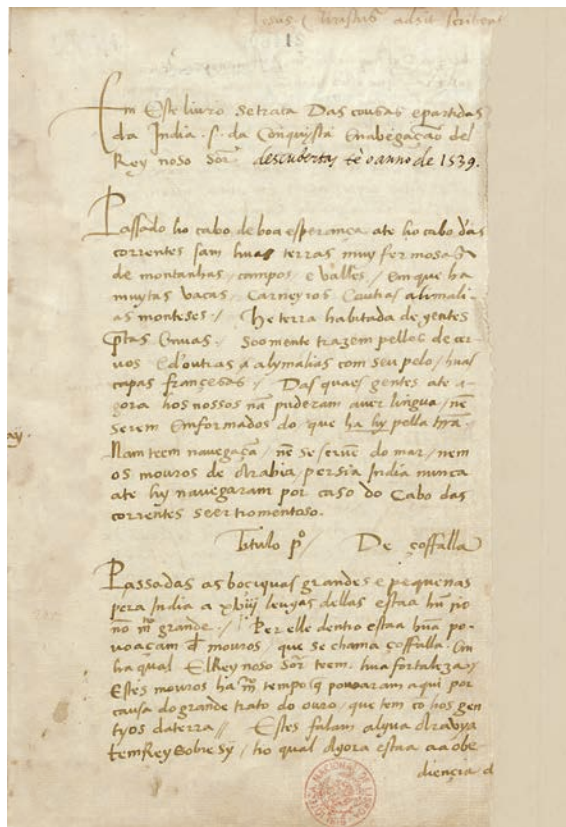 Jesus Christus adsit scribenti
1
Em Este livro se trata Das cousas e partidas
da India .s. da Conquista Enabegação del
Rey noso Sõr descubertas tè o anno de 1539.
Passado ho cabo de boa esperança ate ho cabo das
correntes sam huãs terras muy fermosas
de montanhas / campos / e valles / Em que ha
muytas vacas / Carneyros Eoutras alymali-
as monteses ./ He terra habitada de gentes
p̃tas Enuas / Soomente trazem pelles de cer-
vos Edoutras alymalias com seu pelo / huãs
capas françesas ./ Das quaes gentes ate a-
gora hos nossos nã puderam aver lingua / nẽ
serem Emformados do que ha hy pella trã.
Nam teem navegaçã / nẽ se servẽ do mar / nem
os mouros de Arabia / persia India nunca
ate hy navegaram por caso do Cabo das
correntes seer tromentoso.
Titulo pº / De çoffalla
Passadas as bociquas grandes e pequenas
pera India a xbiij leugas dellas estaa hũ rio
nõ m̃ grande ./ Per elle dentro estaa huã po-
voaçam d mouros / que se chama çoffalla. Em
ha qual ElRey noso sõr teem hua fortaleza /
Estes mouros ha m̃ tempo q̃ povoaram aqui por
causa do grande trato do ouro / que tem cõ hos gen
tyos da terra // Estes falam algua Aravya
tem Rey Sobre sy / ho qual Agora estaa aa obe
diençia d
ay.
BIBLIOTECA NACIONAL DE LISBOA